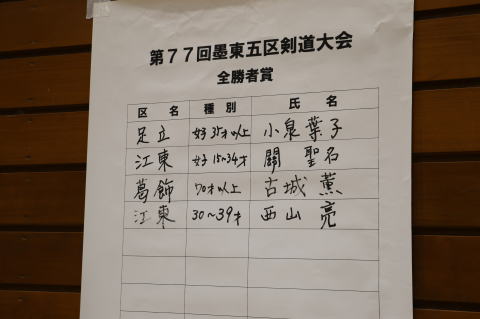 第77回墨東五区剣道大会
全勝者賞
区名 種別 氏名
足立 女子35才以上 小泉葉子
江東 女子15~34才 關聖名
葛飾 70才以上 古城薫
江東 30~39才 西山亮